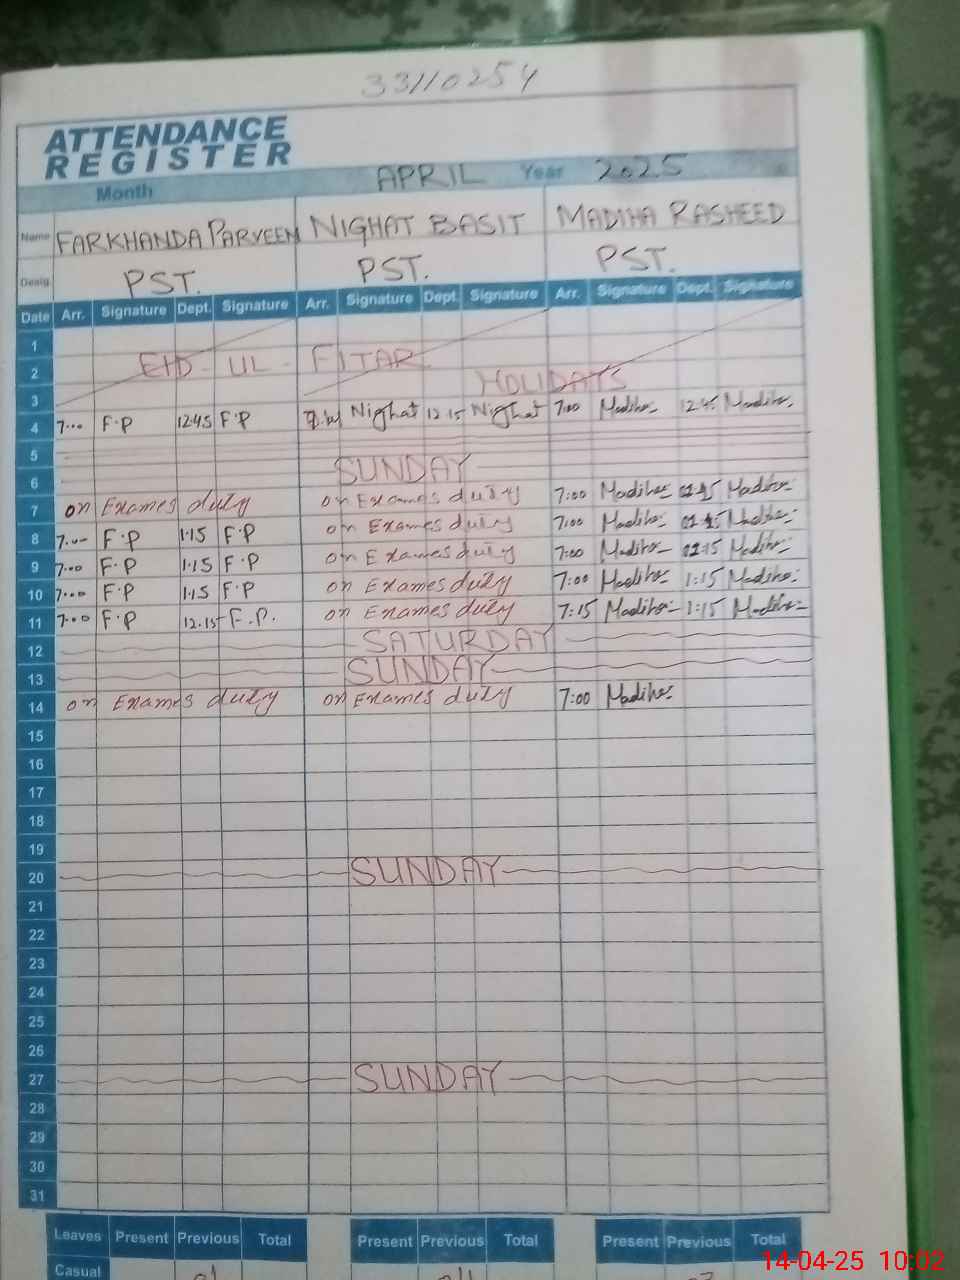 33110254
ATTENDANCE
REGISTER
Month APRIL Year 2025
Name FARKHANDA PARVEEN NIGHAT BASIT MADIHA RASHEED
Desig. PST. PST. PST.
Date Arr. Signature Dept. Signature Arr. Signature Dept. Signature Arr. Signature Dept. Signature
1
EID - UL - FITAR
2
HOLIDAYS
3
4 7:00 F.P 12:45 F.P Nighat 12:15 Nighat 7:00 Madiha 12:45 Madiha
5
6 SUNDAY
7 on Exames duty on Exames duty 7:00 Madiha Madiha
8 7:00 F.P 1:15 F.P on Exames duty 7:00 Madiha Madiha
9 7:00 F.P 1:15 F.P on Exames duty 7:00 Madiha 01:15 Madiha
10 7:00 F.P 1:15 F.P on Exames duty 7:00 Madiha 1:15 Madiha
11 7:00 F.P 12:15 F.P. on Exames duty 7:15 Madiha 1:15 Madiha
12 SATURDAY
13 SUNDAY
14 on Exames duty on Exames duty 7:00 Madiha
15
16
17
18
19
20 SUNDAY
21
22
23
24
25
26
27 SUNDAY
28
29
30
31
Leaves Present Previous Total Present Previous Total Present Previous Total
Casual
14-04-25 10:02